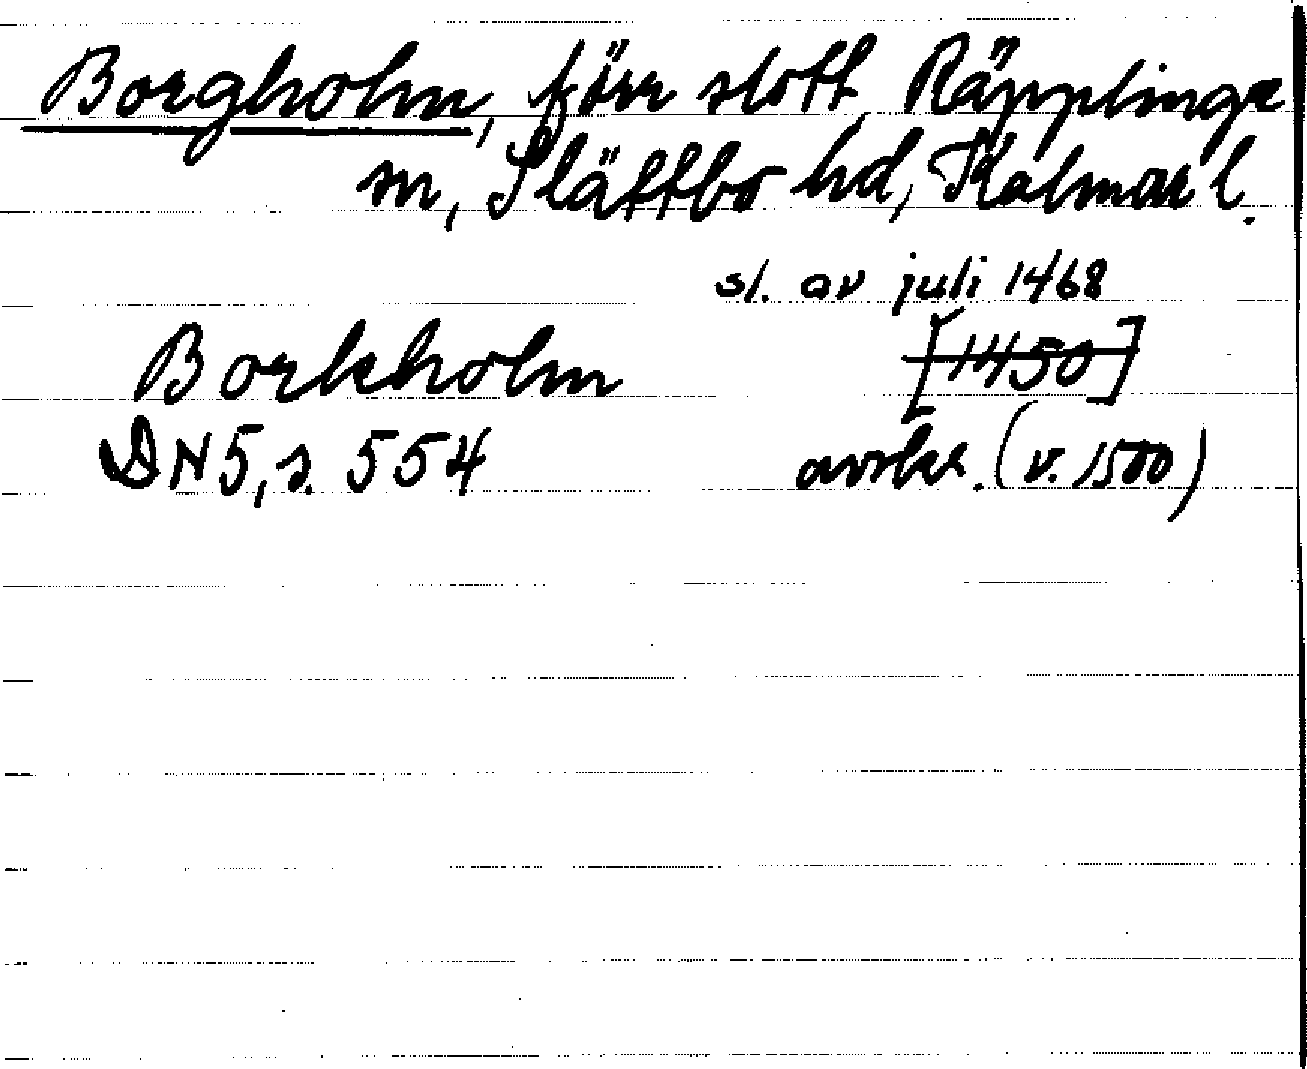 Borgholm, förr slott, Räpplinge
sn, Slättbo hd, Kalmar l.
sl. av juli 1468
Borkholm [1450]
DN 5, s. 554 avskr. (v. 1500)